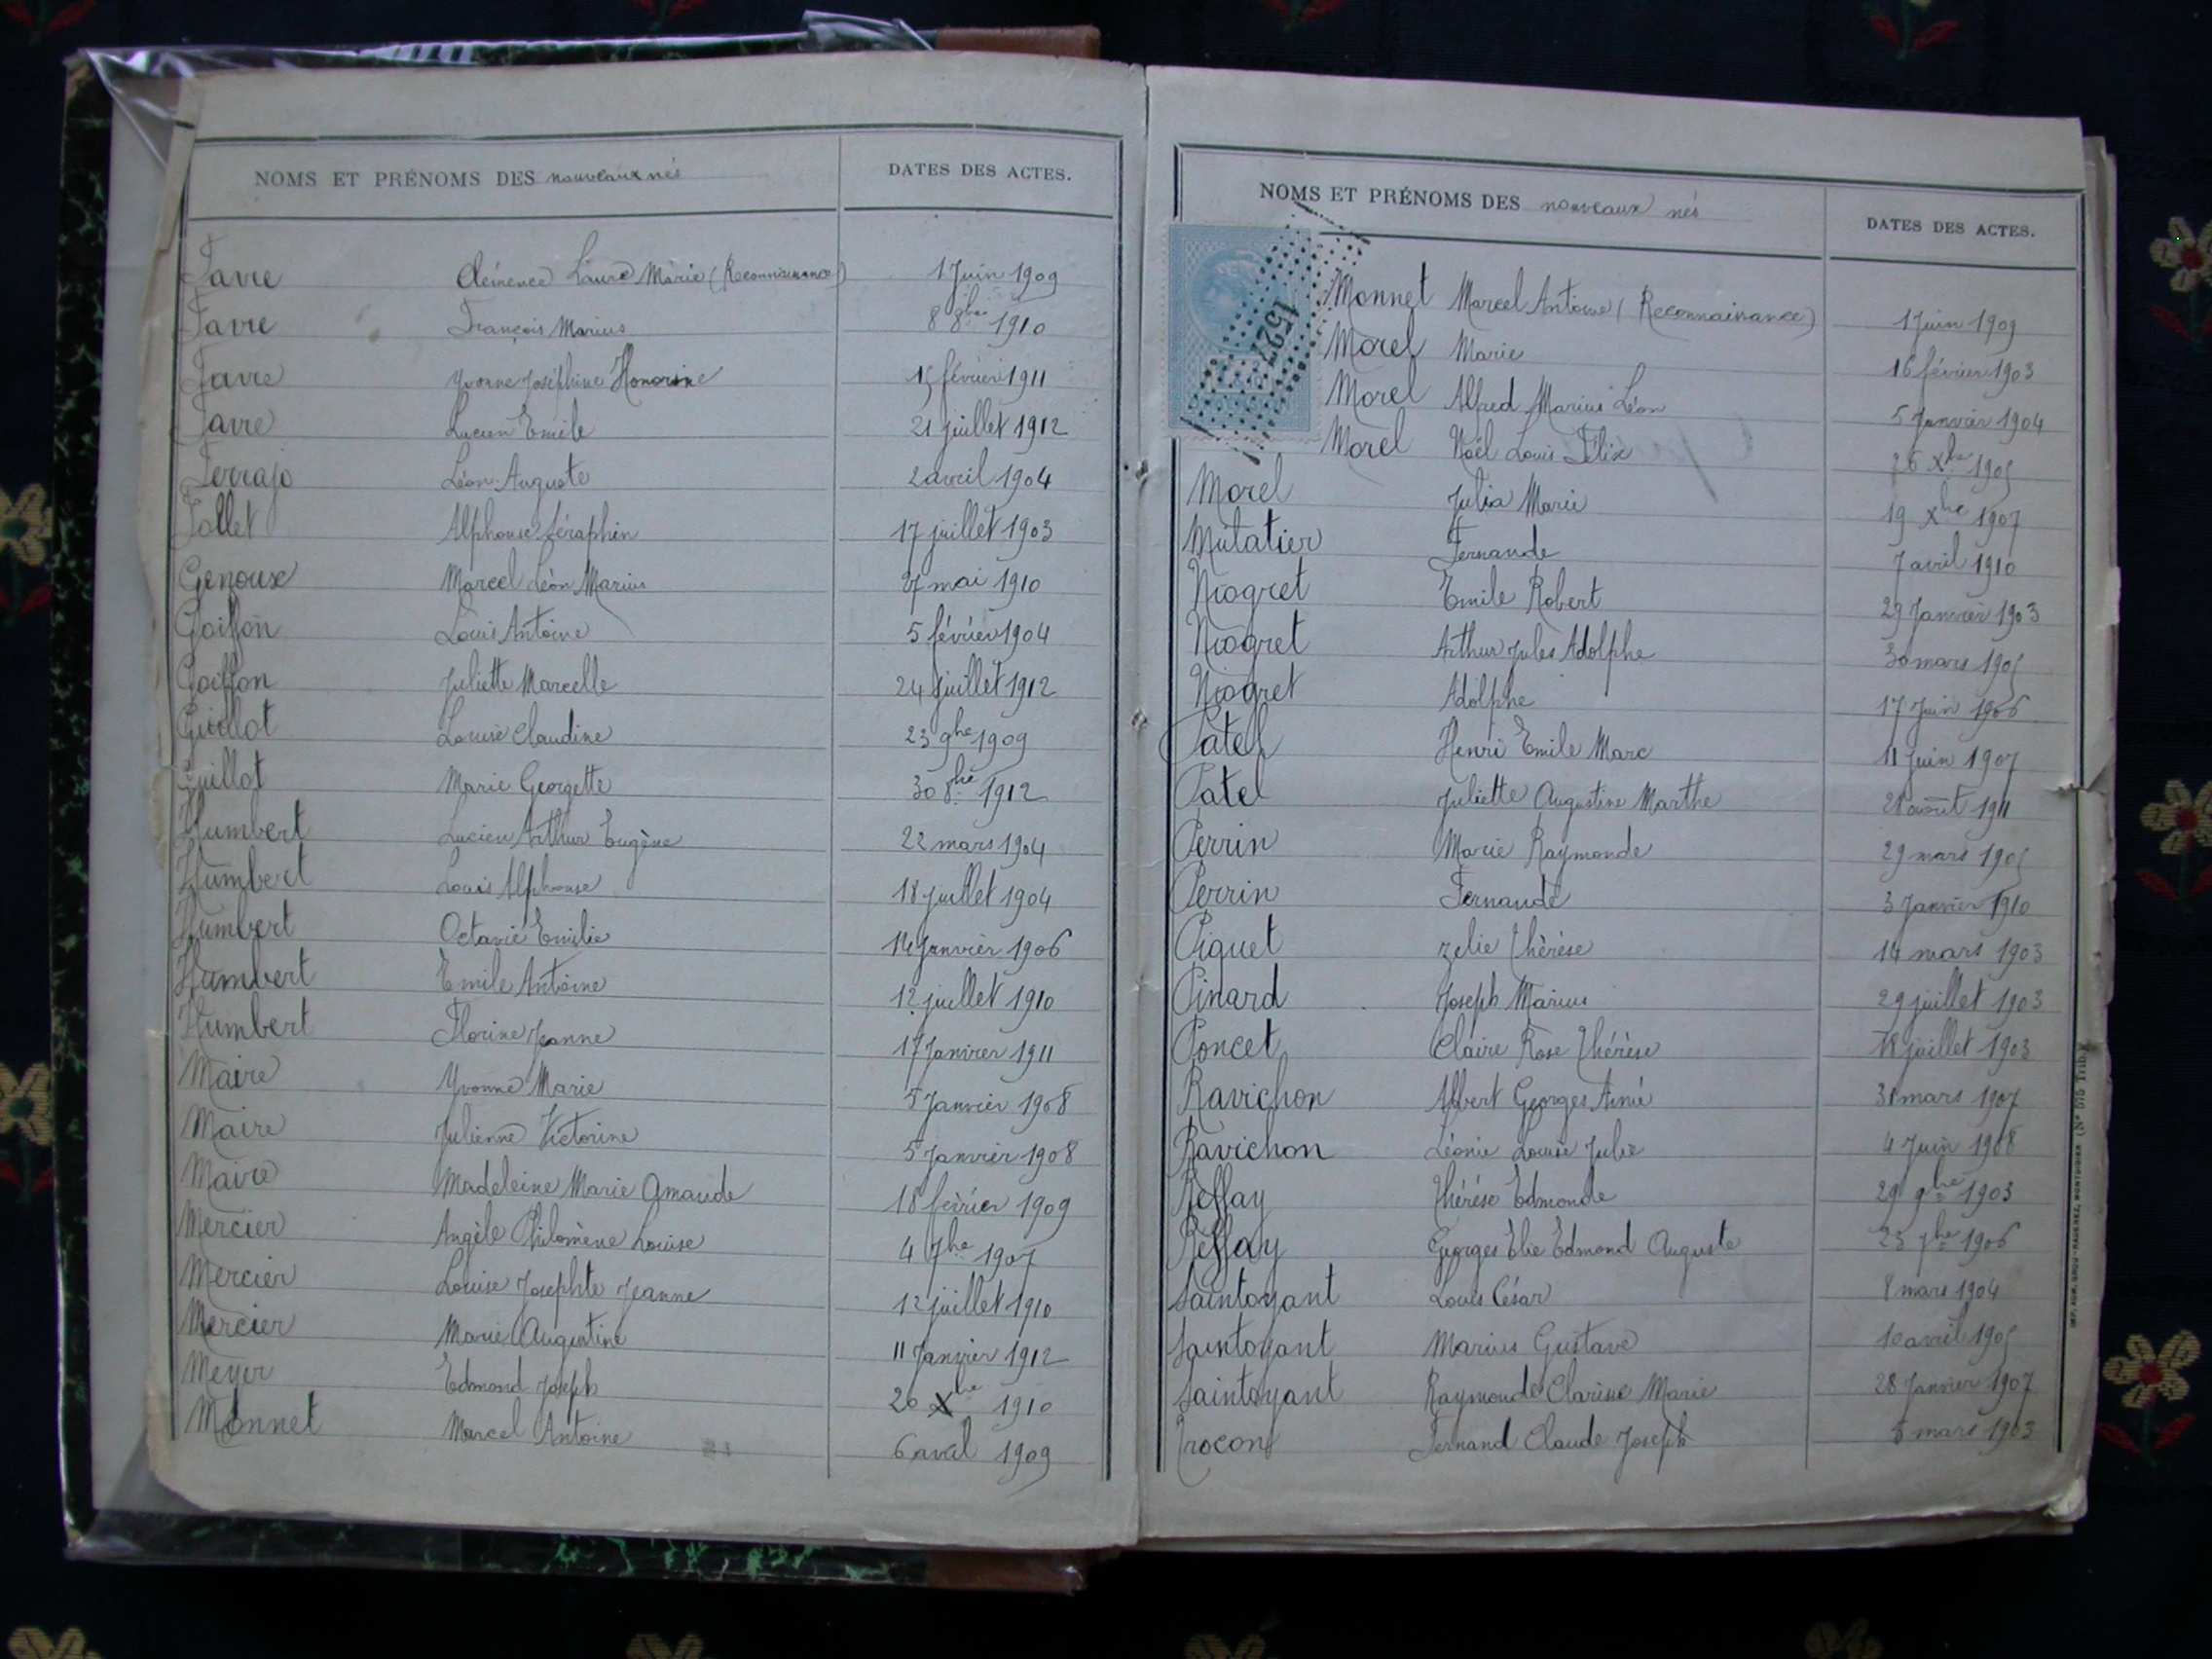 NOMS ET PRÉNOMS DES nouveaux nés DATES DES ACTES.
Favre Clémence Laure Marie (Reconnaissance) 1 Juin 1909
Favre François Marius 8 8bre 1910
Favre Yvonne Joséphine Honorine 15 février 1911
Favre Lucien Emile 21 juillet 1912
Ferrajo Léon Auguste 2 avril 1904
Follet Alphonse Séraphin 17 juillet 1903
Genoux Marcel Léon Marius 27 mai 1910
Goiffon Louis Antoine 5 février 1904
Goiffon Juliette Marcelle 24 juillet 1912
Guillot Louise Claudine 23 9bre 1909
Guillot Marie Georgette 30 8bre 1912
Humbert Lucien Arthur Eugène 22 mars 1904
Humbert Louis Alphonse 18 juillet 1904
Humbert Octavie Emilie 14 Janvier 1906
Humbert Emile Antoine 12 juillet 1910
Humbert Florine Jeanne 17 Janvier 1911
Maire Yvonne Marie 5 Janvier 1908
Maire Julienne Victorine 5 Janvier 1908
Maire Madeleine Marie Amande 18 février 1909
Mercier Angèle Philomène Louise 4 7bre 1907
Mercier Louise Josephte Jeanne 12 juillet 1910
Mercier Marie Augustine 11 Janvier 1912
Meyer Edmond Joseph 26 Xbre 1910
Monnet Marcel Antoine 6 avril 1909
NOMS ET PRÉNOMS DES nouveaux nés DATES DES ACTES.
1527
Monnet Marcel Antoine (Reconnaissance) 1 Juin 1909
Morel Marie 16 février 1903
Morel Alfred Marius Léon 5 Janvier 1904
Morel Noël Louis Félix 26 Xbre 1905
Morel Julia Marie 19 Xbre 1907
Mutatier Fernande 7 avril 1910
Niogret Emile Robert 29 Janvier 1903
Niogret Arthur Jules Adolphe 30 mars 1905
Niogret Adolphe 17 Juin 1906
Patel Henri Emile Marc 11 Juin 1907
Patel Juliette Augustine Marthe 21 août 1911
Perrin Marie Raymonde 29 mars 1905
Perrin Fernande 3 Janvier 1910
Piquet Zelie Thérèse 14 mars 1903
Pinard Joseph Marius 29 juillet 1903
Poncet Claire Rose Thérèse 18 juillet 1903
Ravichon Albert Georges Aimé 31 mars 1907
Ravichon Léonie Louise Julie 4 Juin 1908
Reffay Thérèse Edmonde 29 9bre 1903
Reffay Georges Elie Edmond Auguste 23 7bre 1906
Saintoyant Louis César 8 mars 1904
Saintoyant Marius Gustave 10 avril 1905
Saintoyant Raymonde Clarisse Marie 28 Janvier 1907
Trocon Fernand Claude Joseph 5 mars 1903